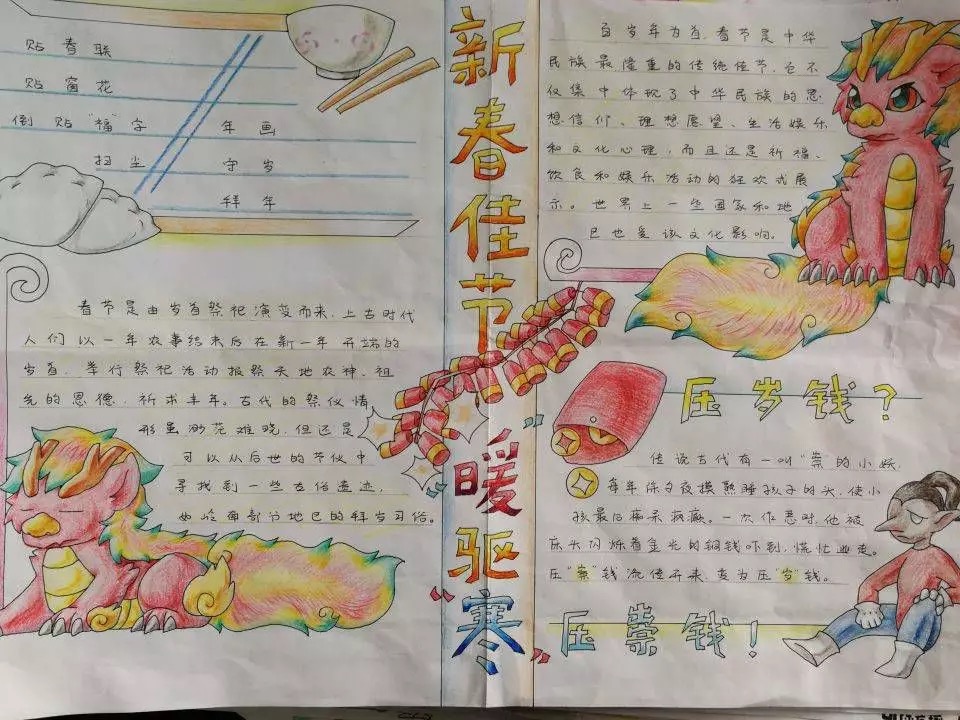 贴春联
贴窗花
倒贴"福"字 年画
扫尘 守岁
拜年
春节是由岁首祭祀演变而来,上古时代
人们以一年农事结束后在新一年开端的
岁首,举行祭祀活动报祭天地农神、祖
先的恩德、祈求丰年。古代的祭仪情
形虽渺茫难晓,但还是
可以从后世的节仪中
寻找到一些古俗遗迹,
如岭南部分地区的拜岁习俗。
新春佳节
"暖驱寒"
百岁年为首,春节是中华
民族最隆重的传统佳节,它不
仅集中体现了中华民族的思
想信仰、理想愿望、生活娱乐
和文化心理,而且还是祈福、
饮食和娱乐活动的狂欢式展
示。世界上一些国家和地
区也受该文化影响。
压岁钱?
传说古代有一叫"祟"的小妖,
每年除夕夜摸熟睡孩子的头,使小
孩最后痴呆疯癫。一次作恶时,他被
床头闪烁着金光的铜钱吓到,慌忙逃走。
压"祟"钱流传开来,变为压"岁"钱。
压祟钱!